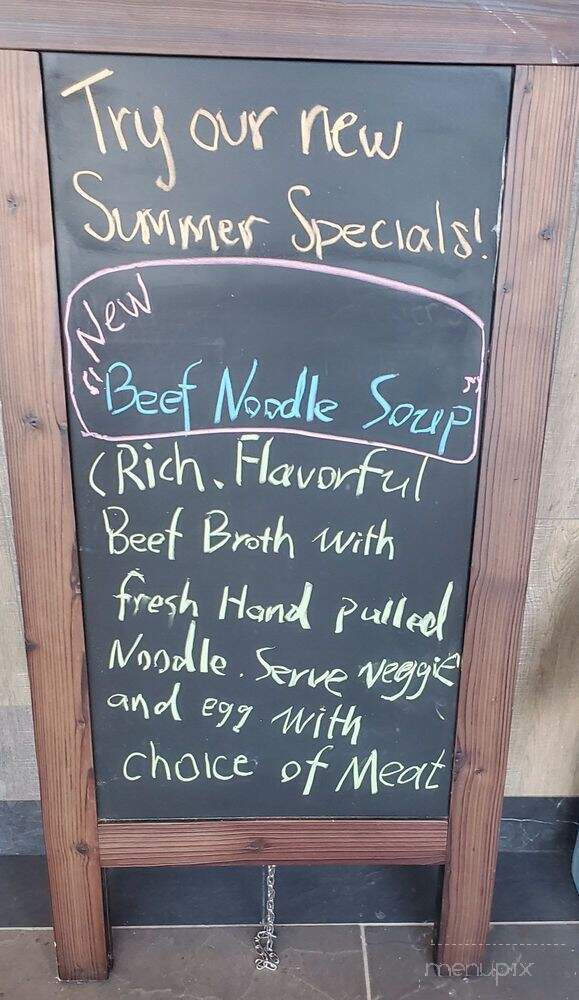 Try our new
Summer Specials!
New
"Beef Noodle Soup"
(Rich. Flavorful
Beef Broth with
fresh Hand pulled
Noodle. Serve veggie
and egg with
choice of Meat
menupix